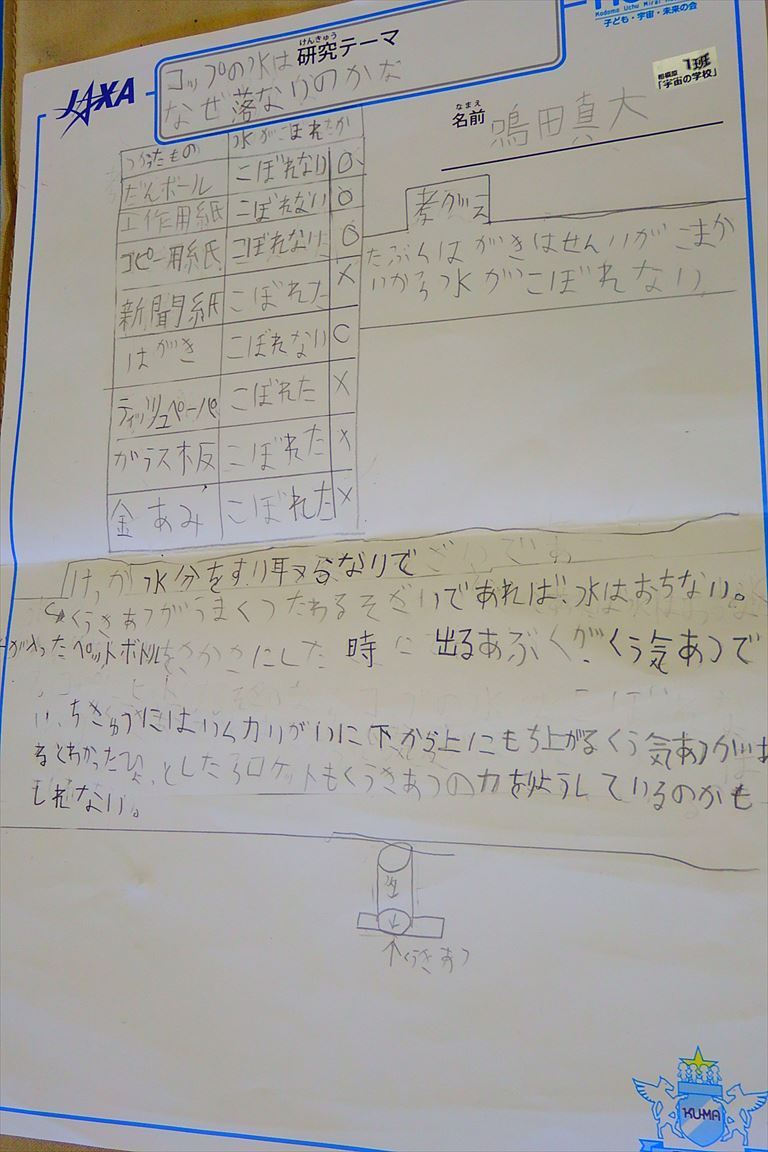 JAXA
Kodomo Uchu Mirai
子ども・宇宙・未来の会
けんきゅう
研究テーマ
コップの水は
なぜ落ないのかな
相模原 1班
「宇宙の学校」
なまえ
名前 鳴田真大
つかったもの 水がこぼれたか
だんボール こぼれない ○
工作用紙 こぼれない ○
コピー用紙 こぼれない ○
新聞紙 こぼれた ×
はがき こぼれない ○
ティッシュペーパ こぼれた ×
ガラス板 こぼれた ×
金あみ こぼれた ×
考がえ
たぶんはがきはせんいがこまか
いから水がこぼれない
けっか 水分をすい取らないで
くうきあつがうまくつたわるそざいであれば、水はおちない。
ペットボトルをさかさにした時に出るあぶくが、くう気あつで
ちきゅうにはいんカりがいに下から上にもち上がるくう気あつが
るとわかったひょっとしたらロケットもくうきあつの力を
しているのかも
しれない。
くうきあつ
KUMA